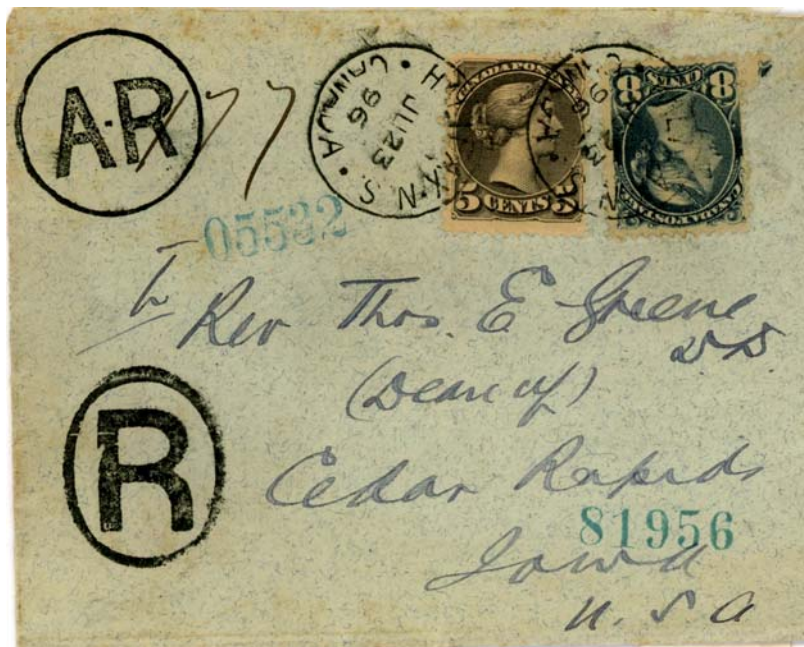 A·R
177
HALIFAX · N.S. · CANADA
JU 23
96
CANADA POSTAGE
5 CENTS 5
CANADA POSTAGE
8 CENTS 8
05532
To
Rev Thos. E Greene
D D
(Dean of)
R
Cedar Rapids
81956
Iowa
U. S. A